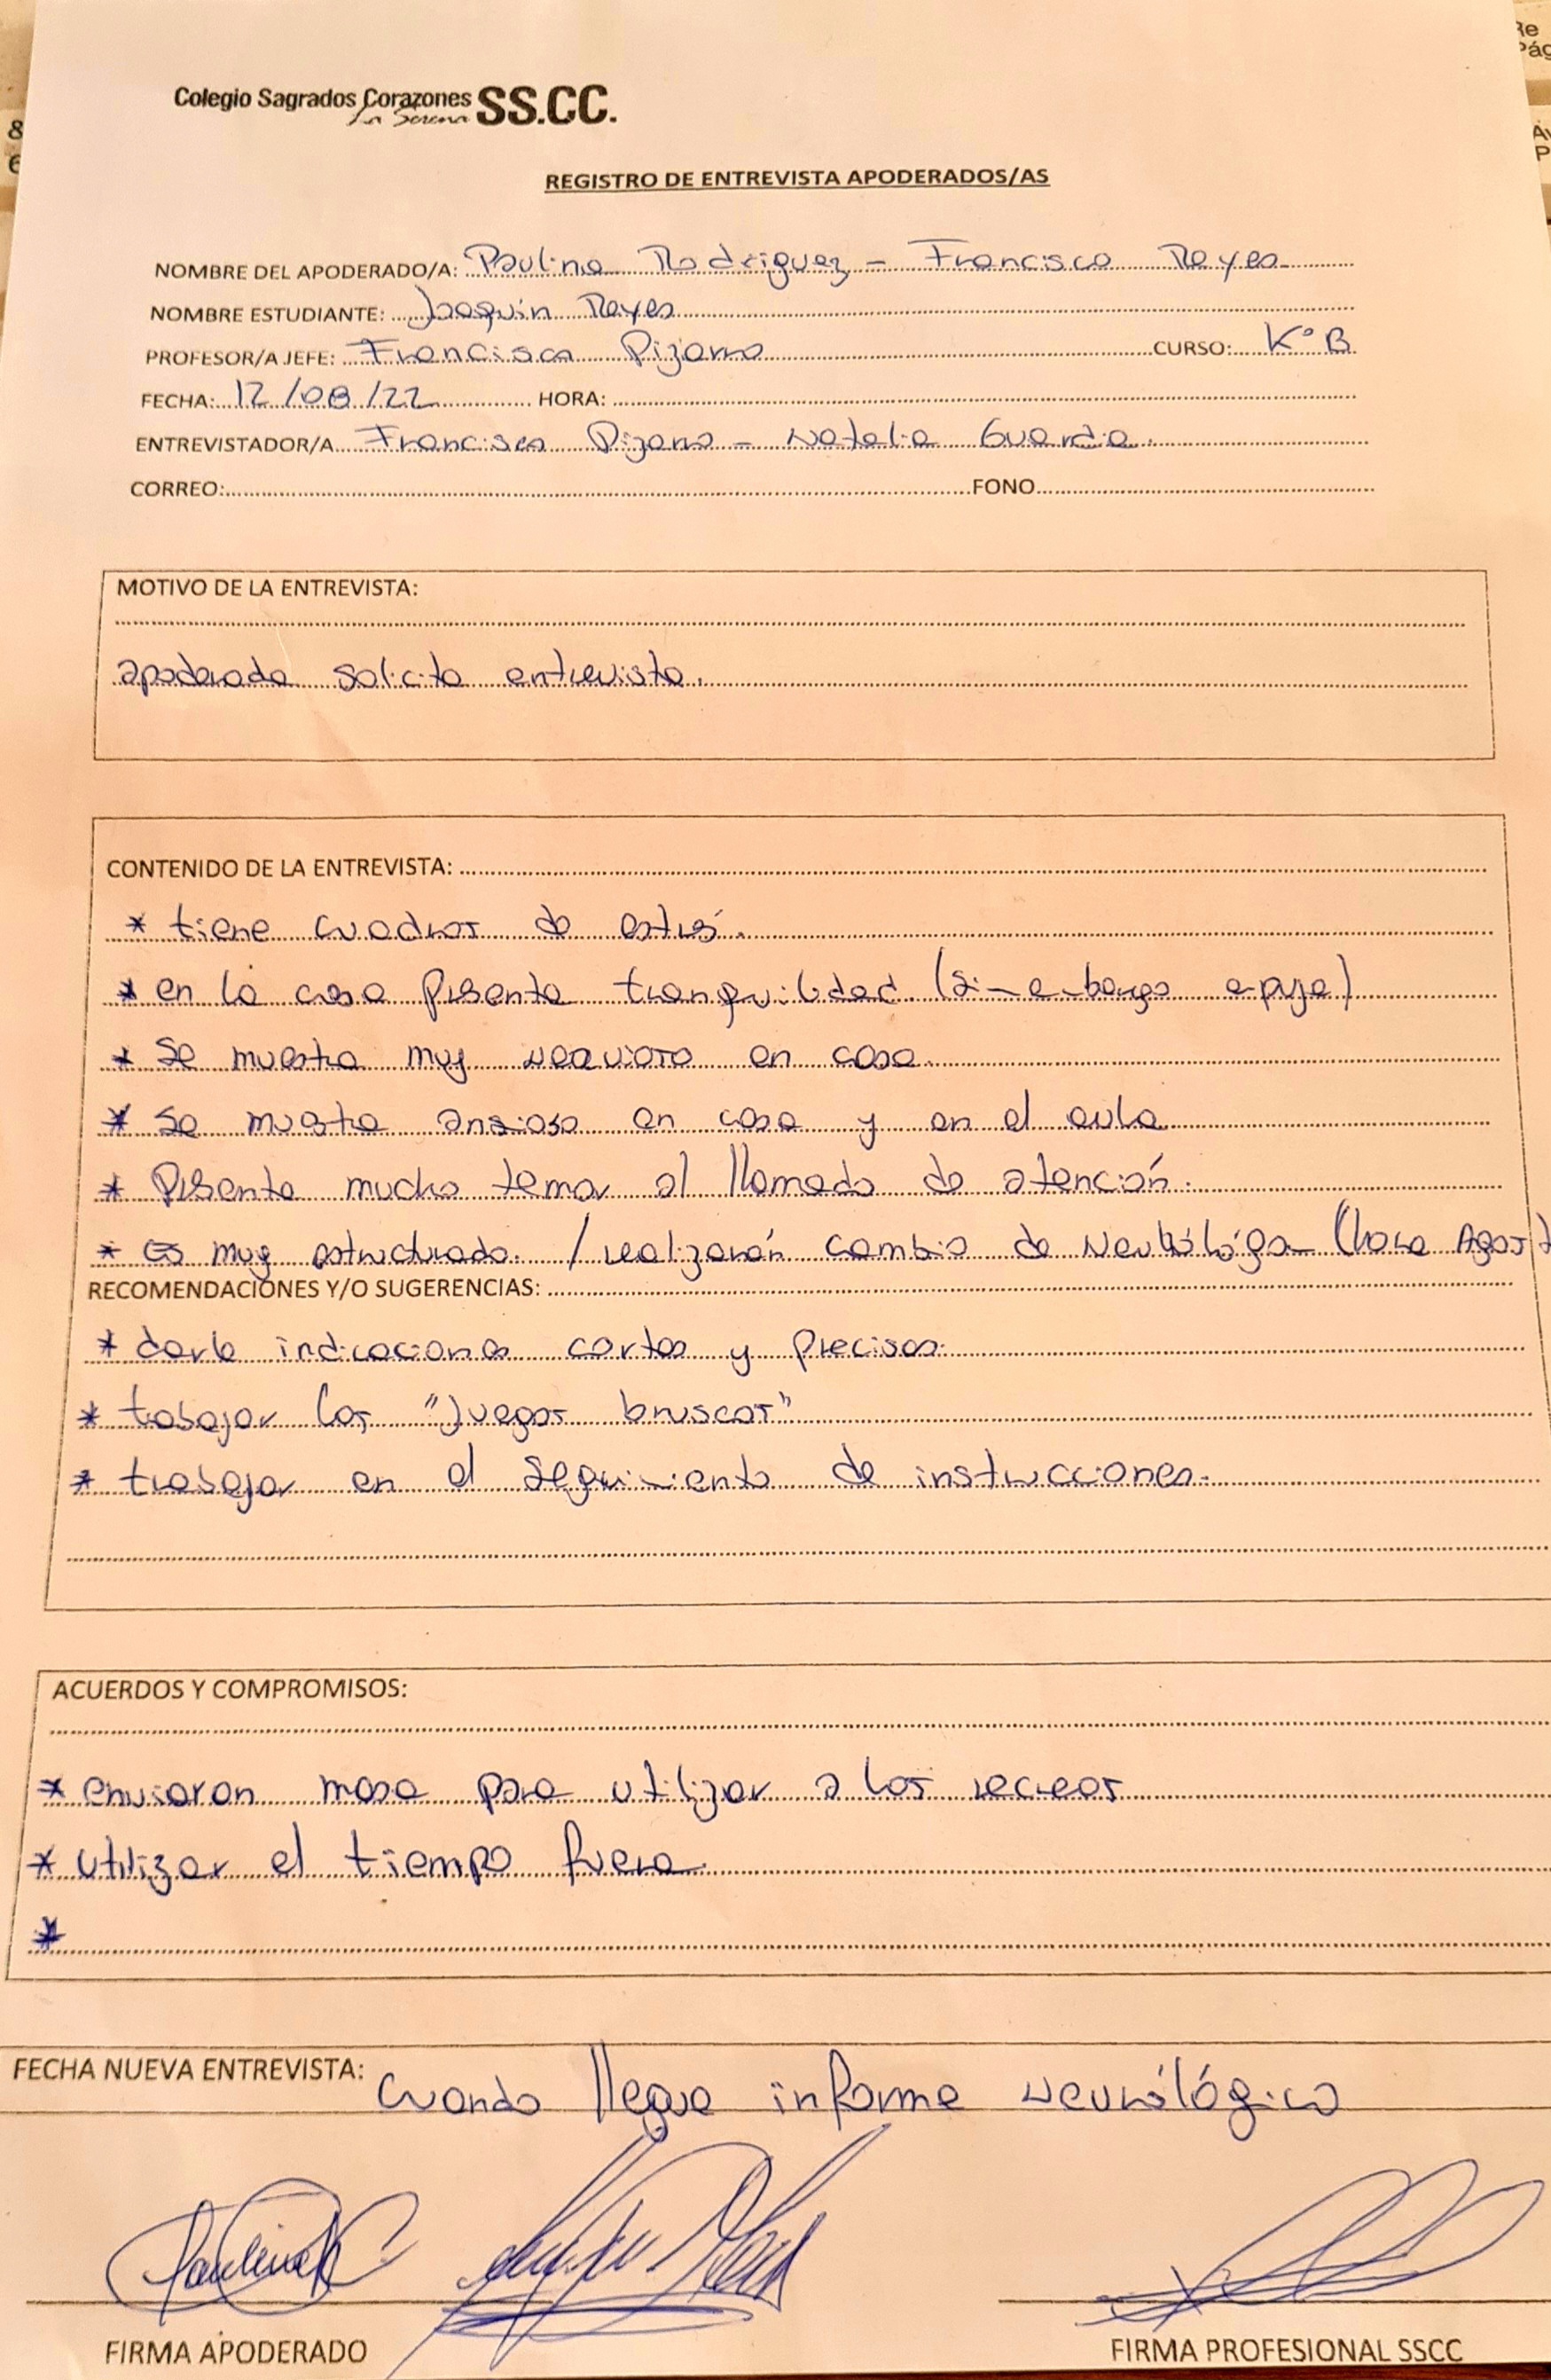 Colegio Sagrados Corazones SS.CC.
La Serena
REGISTRO DE ENTREVISTA APODERADOS/AS
NOMBRE DEL APODERADO/A: Paulina Rodriguez - Francisco Reyes
NOMBRE ESTUDIANTE: Joaquín Reyes
PROFESOR/A JEFE: Francisca Pizarro CURSO: K°B
FECHA: 12/08/22 HORA:
ENTREVISTADOR/A Francisca Pizarro - Natalia Guardia.
CORREO: FONO
MOTIVO DE LA ENTREVISTA:
apoderada solicita entrevista.
CONTENIDO DE LA ENTREVISTA:
* tiene cuadros de estrés.
* en la casa presenta tranquilidad (sin embargo empuja)
* Se muestra muy nervioso en casa.
* se muestra ansioso en casa y en el aula
* Presenta mucho temor al llamado de atención.
* es muy estructurado. / realizarán cambio de Neurólóga (hora Agost
RECOMENDACIONES Y/O SUGERENCIAS:
* darle indicaciones cortas y precisas.
* trabajar los "juegos bruscos"
* trabajar en el seguimiento de instrucciones.
ACUERDOS Y COMPROMISOS:
* enviaron masa para utilizar a los recreos
* utilizar el tiempo fuera.
*
FECHA NUEVA ENTREVISTA: Cuando llegue informe neurólógico
FIRMA APODERADO FIRMA PROFESIONAL SSCC